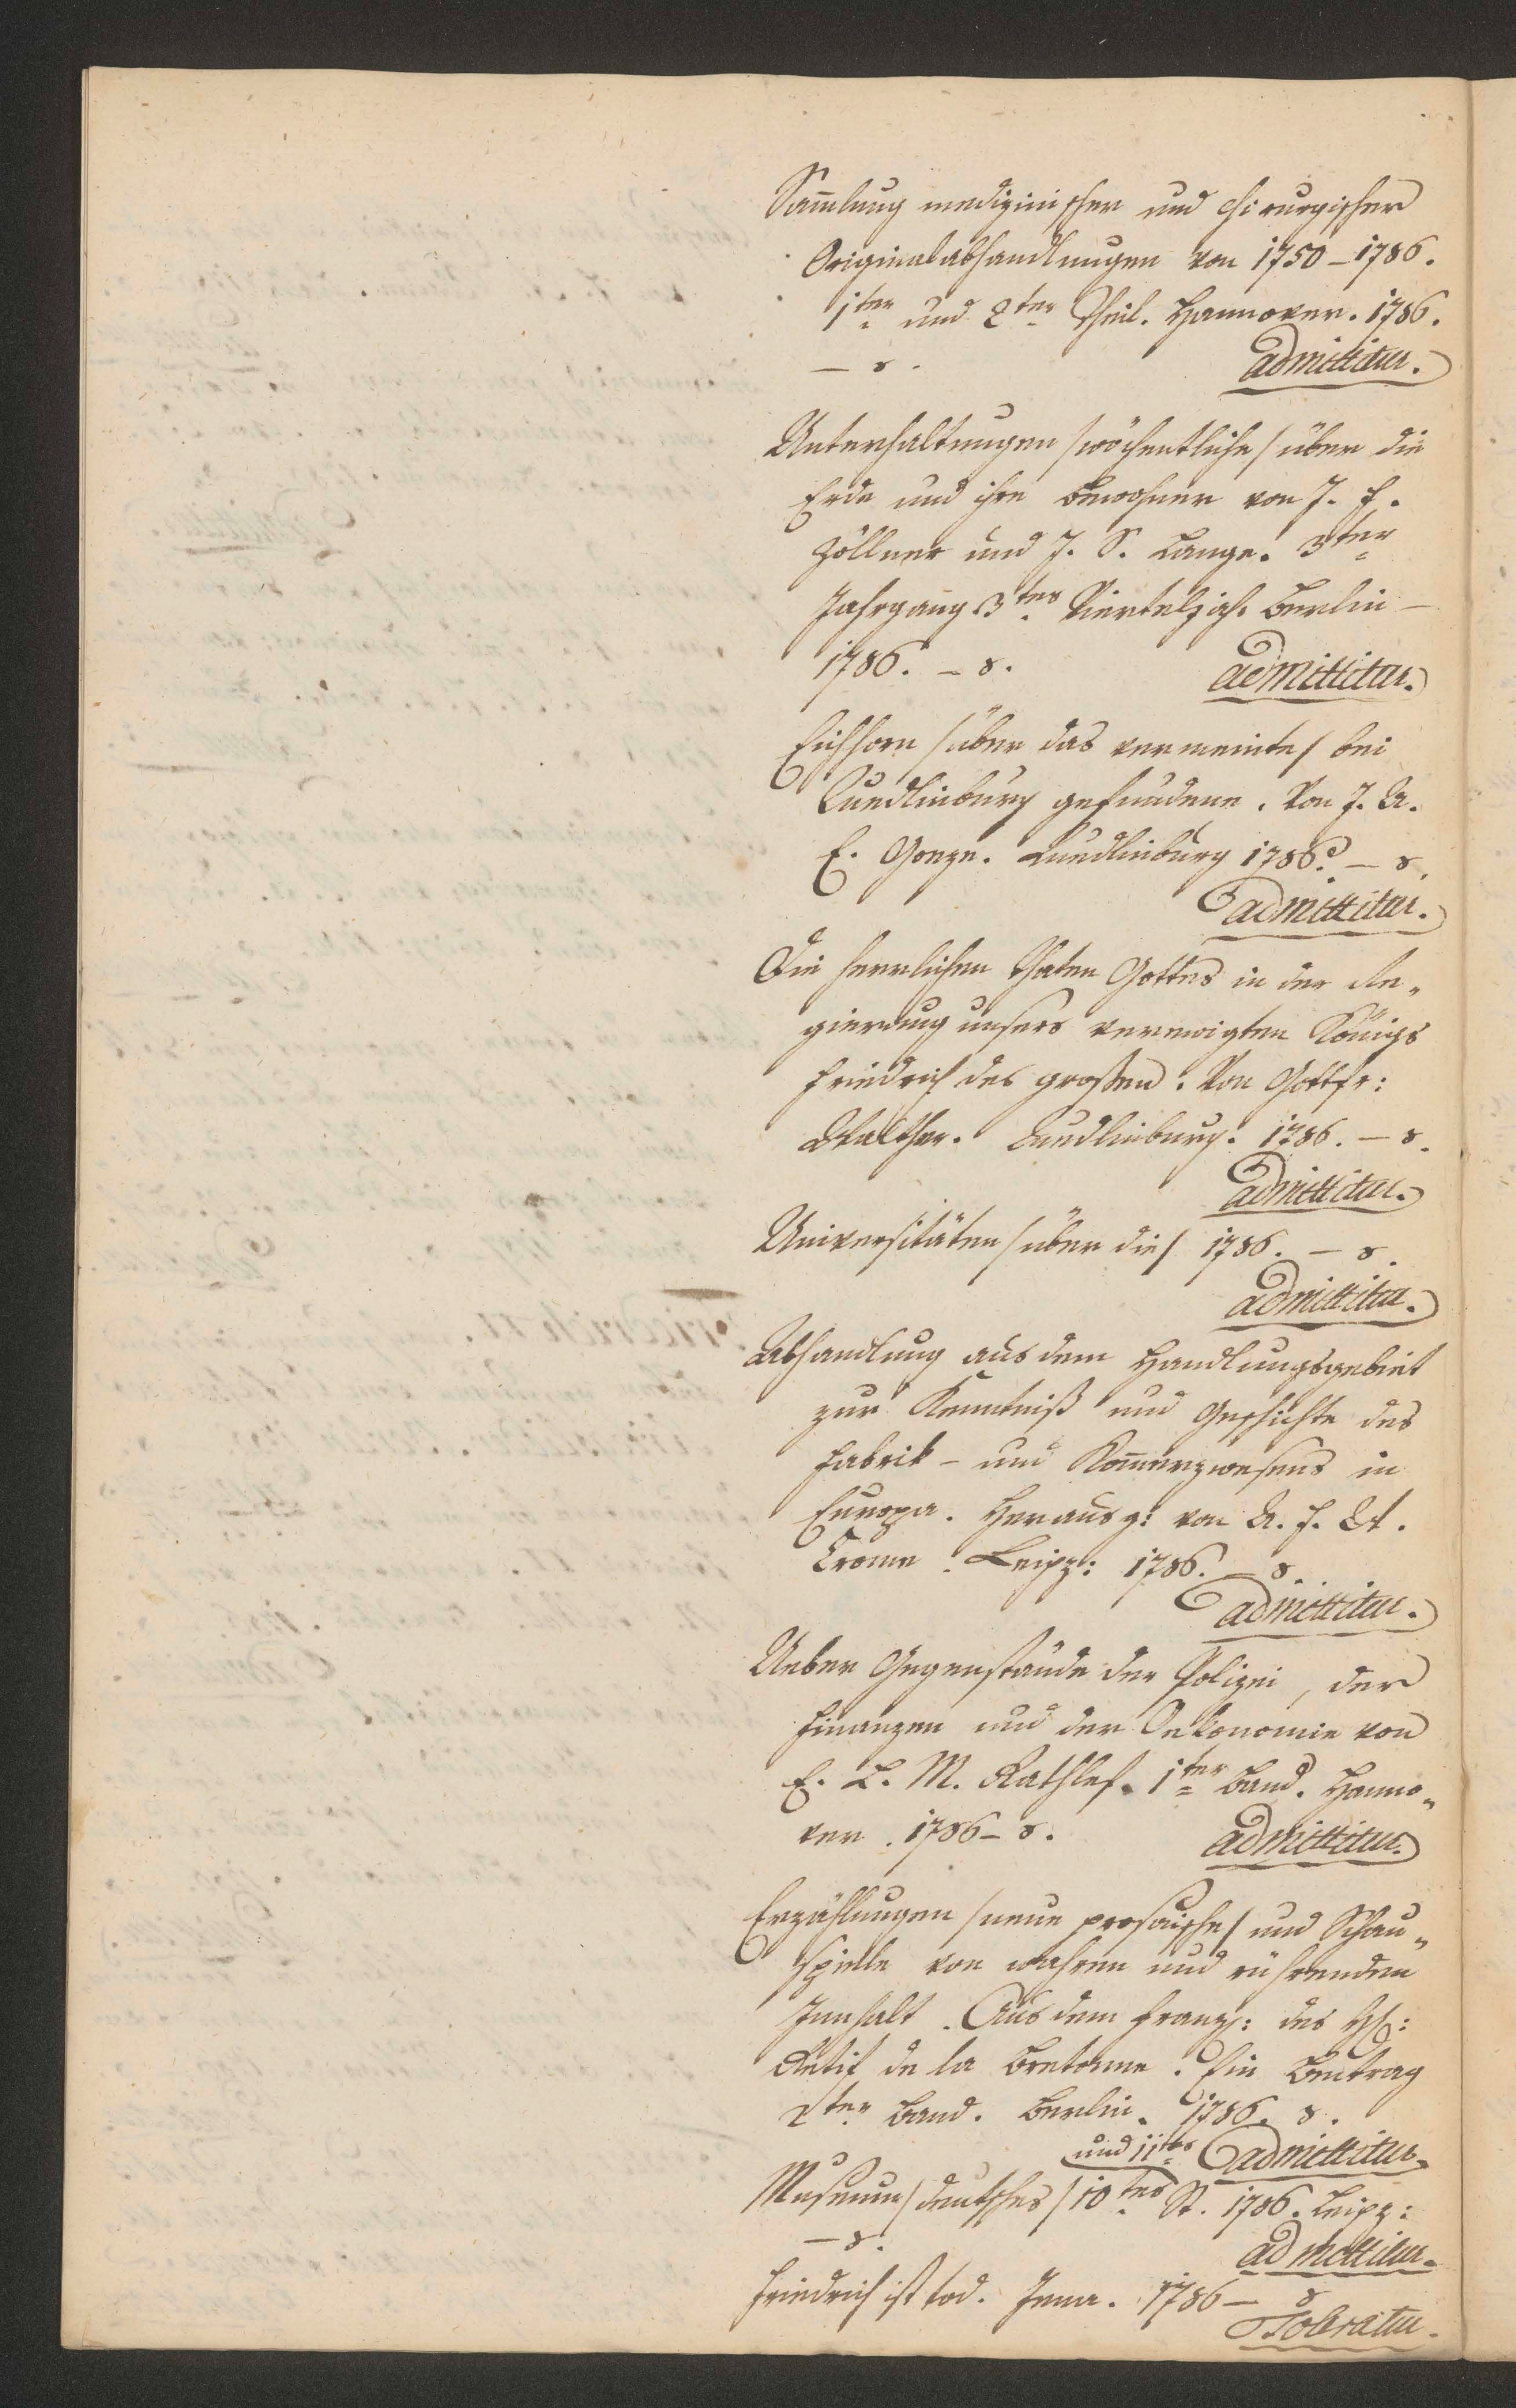 Sam̅lung medizinischer und chirurgischer
Originalabhandlungen von 1750 – 1786.
1ter und 2ter Theil. Hannover. 1786.
– 8. admittitur.
Unterhaltungen /wöchentliche/ über die
Erde und ihre Bewohner von J. F.
Zöllner und J. S. Lange. 3ter
Jahrgang 3tes Vierteljah. Berlin –
1786. – 8. admittitur.
Eichhorn /über das vermeinte/ bei
Quedlinburg gefundene. Von J. A.
E. Goeze. Quedlinburg 1786. – 8.
admittitur.
Die herrlichen Thaten Gottes in der Re„
gierung unsers verewigten Königs
Friedrich des großen. Von Gottfr:
Walther. Quedlinburg. 1786. – 8.
admittitur.
Universitäten /über die/ 1786. – 8.
admittitur.
Abhandlung aus dem Handlungsgebiet
zur Kenntniß und Geschichte des
Fabrik – und Kom̅erzwesens in
Europa. Herausg: von A. F. W.
Crome. Leipz: 1786. – 8.
admittitur.
Ueber Gegenstände der Polizei, der
Finanzen und der Oekonomie von
E. L. M. Rathlef. 1ter Band. Hanno„
ver. 1786 – 8. admittitur.
Erzählungen /neue prosaische/ und Schau„
spielle von wahren und rührenden
Innhalt. Aus dem Franz: des H:
Retif de la Bretonne. Ein Beitrag
2ter Band. Berlin. 1786. 8.
und 11tes admittitur.
Museum /deutsches/ 10tes St. 1786. Leipz:
– 8. admittitur.
Friedrich ist tod. Jena. 1786 – 8
Toleratur.